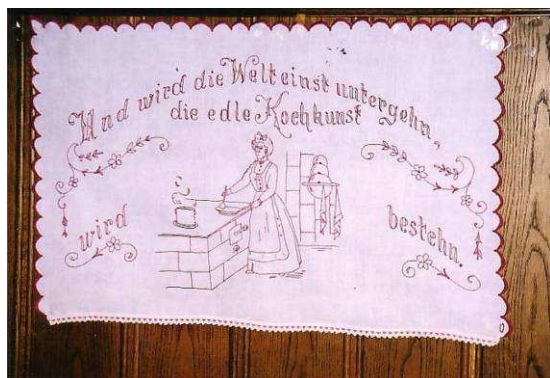 Und wird die Welt einst untergehn,
die edle Kochkunst
wird bestehn.